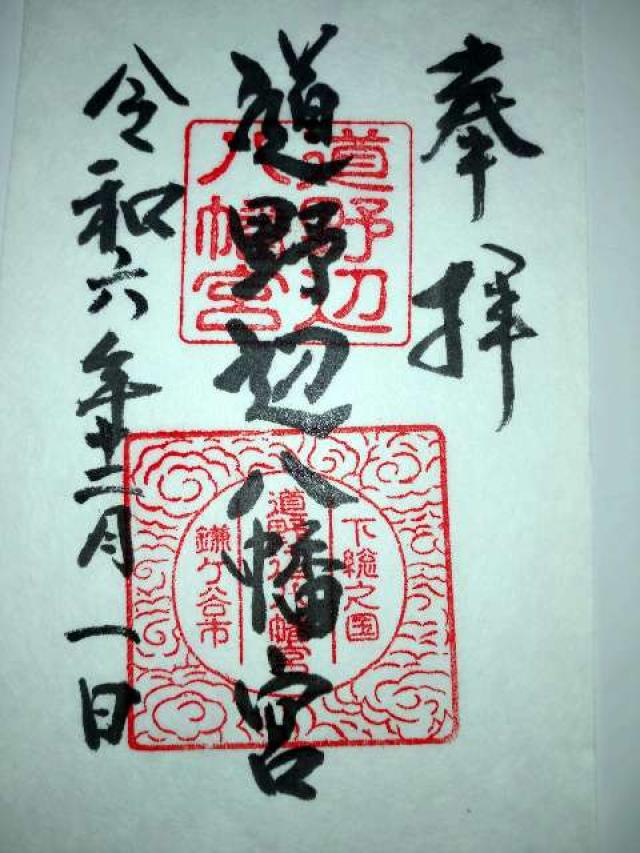 奉拝
道野辺八幡宮
令和六年十二月一日
道野辺
八幡宮
下総之国
鎌ケ谷市